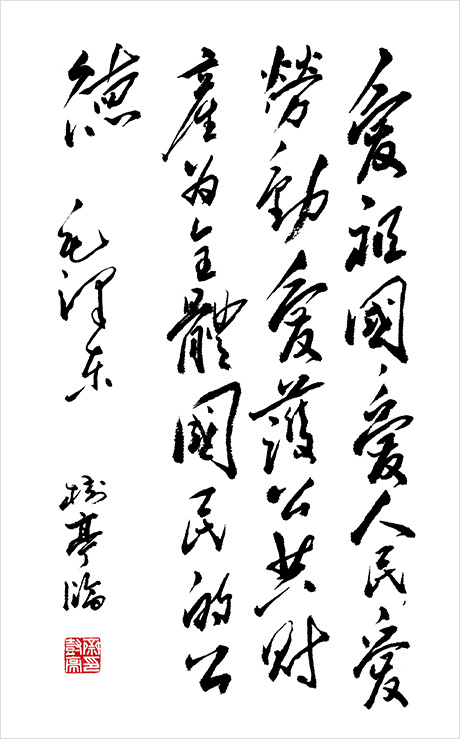 愛祖國、愛人民、愛
勞動、愛護公共財
產为全體國民的公
德
毛澤东
樹亭臨